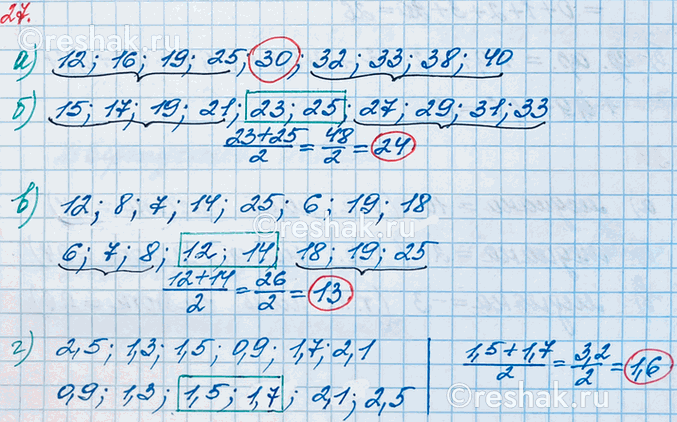 27.
а) 12; 16; 19; 25; 30; 32; 33; 38; 40
б) 15; 17; 19; 21; 23; 25; 27; 29; 31; 33
(23+25)/2 = 48/2 = 24
в) 12; 8; 7; 14; 25; 6; 19; 18
6; 7; 8; 12; 14; 18; 19; 25
(12+14)/2 = 26/2 = 13
г) 2,5; 1,3; 1,5; 0,9; 1,7; 2,1
0,9; 1,3; 1,5; 1,7; 2,1; 2,5
(1,5+1,7)/2 = 3,2/2 = 1,6
reshak.ru
reshak.ru
reshak.ru
reshak.ru